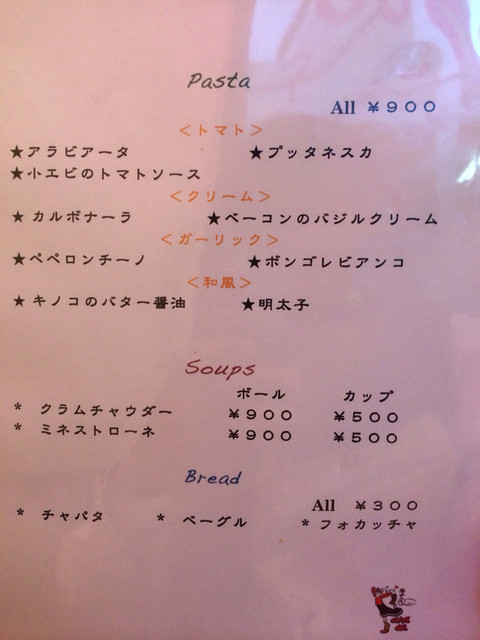 Pasta
All ￥900
＜トマト＞
★アラビアータ ★プッタネスカ
★小エビのトマトソース
＜クリーム＞
★カルボナーラ ★ベーコンのバジルクリーム
＜ガーリック＞
★ペペロンチーノ ★ボンゴレビアンコ
＜和風＞
★キノコのバター醤油 ★明太子
Soups
ボール カップ
* クラムチャウダー ￥900 ￥500
* ミネストローネ ￥900 ￥500
Bread
All ￥300
* チャパタ * ベーグル * フォカッチャ